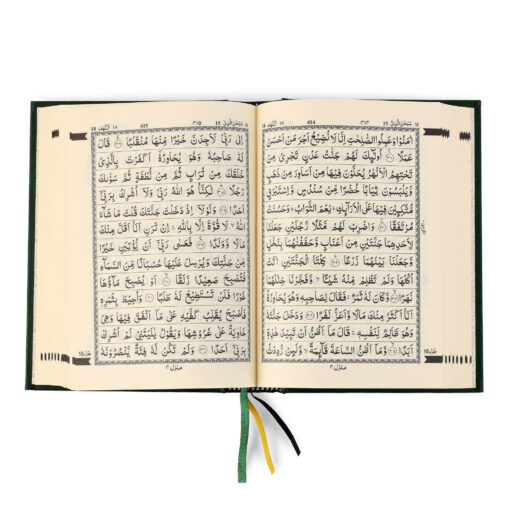 سُبْحٰنَ الَّذِیْۤ 15 414 ۱۸ الكهف
اٰمَنُوْا وَعَمِلُوا الصّٰلِحٰتِ اِنَّا لَا نُضِیْعُ اَجْرَ مَنْ اَحْسَنَ
عَمَلًا ۚ﴿۳۰﴾ اُولٰٓئِكَ لَهُمْ جَنّٰتُ عَدْنٍ تَجْرِیْ مِنْ
تَحْتِهِمُ الْاَنْهٰرُ یُحَلَّوْنَ فِیْهَا مِنْ اَسَاوِرَ مِنْ ذَهَبٍ
وَّیَلْبَسُوْنَ ثِیَابًا خُضْرًا مِّنْ سُنْدُسٍ وَّاِسْتَبْرَقٍ
مُّتَّكِـِٕیْنَ فِیْهَا عَلَی الْاَرَآىِٕكِ ؕ نِعْمَ الثَّوَابُ ؕ وَحَسُنَتْ
مُرْتَفَقًا ﴿۳۱﴾ وَاضْرِبْ لَهُمْ مَّثَلًا رَّجُلَیْنِ جَعَلْنَا
لِاَحَدِهِمَا جَنَّتَیْنِ مِنْ اَعْنَابٍ وَّحَفَفْنٰهُمَا بِنَخْلٍ
وَّجَعَلْنَا بَیْنَهُمَا زَرْعًا ﴿۳۲﴾ كِلْتَا الْجَنَّتَیْنِ اٰتَتْ
اُكُلَهَا وَلَمْ تَظْلِمْ مِّنْهُ شَیْـًٔا ۙ وَّفَجَّرْنَا خِلٰلَهُمَا
نَهَرًا ﴿۳۳﴾ وَّكَانَ لَهٗ ثَمَرٌ ۚ فَقَالَ لِصَاحِبِهٖ وَهُوَ یُحَاوِرُهٗۤ
اَنَا اَكْثَرُ مِنْكَ مَالًا وَّاَعَزُّ نَفَرًا ﴿۳۴﴾ وَدَخَلَ جَنَّتَهٗ
وَهُوَ ظَالِمٌ لِّنَفْسِهٖ ۚ قَالَ مَاۤ اَظُنُّ اَنْ تَبِیْدَ هٰذِهٖۤ
اَبَدًا ﴿۳۵﴾ وَّمَاۤ اَظُنُّ السَّاعَةَ قَآىِٕمَةً ۙ وَّلَىِٕنْ رُّدِدْتُّ
منزل
سُبْحٰنَ الَّذِیْۤ 15 415 ۱۸ الكهف 18
اِلٰی رَبِّیْ لَاَجِدَنَّ خَیْرًا مِّنْهَا مُنْقَلَبًا ﴿۳۶﴾ قَالَ
لَهٗ صَاحِبُهٗ وَهُوَ یُحَاوِرُهٗۤ اَكَفَرْتَ بِالَّذِیْ
خَلَقَكَ مِنْ تُرَابٍ ثُمَّ مِنْ نُّطْفَةٍ ثُمَّ سَوّٰىكَ
رَجُلًا ﴿۳۷﴾ لٰكِنَّا۠ هُوَ اللّٰهُ رَبِّیْ وَلَاۤ اُشْرِكُ بِرَبِّیْۤ
اَحَدًا ﴿۳۸﴾ وَلَوْلَاۤ اِذْ دَخَلْتَ جَنَّتَكَ قُلْتَ مَا شَآءَ
اللّٰهُ ۙ لَا قُوَّةَ اِلَّا بِاللّٰهِ ۚ اِنْ تَرَنِ اَنَا اَقَلَّ مِنْكَ
مَالًا وَّوَلَدًا ﴿۳۹﴾ فَعَسٰی رَبِّیْۤ اَنْ یُّؤْتِیَنِ خَیْرًا
مِّنْ جَنَّتِكَ وَیُرْسِلَ عَلَیْهَا حُسْبَانًا مِّنَ السَّمَآءِ
فَتُصْبِحَ صَعِیْدًا زَلَقًا ﴿۴۰﴾ اَوْ یُصْبِحَ مَآؤُهَا
غَوْرًا فَلَنْ تَسْتَطِیْعَ لَهٗ طَلَبًا ﴿۴۱﴾ وَاُحِیْطَ بِثَمَرِهٖ
فَاَصْبَحَ یُقَلِّبُ كَفَّیْهِ عَلٰی مَاۤ اَنْفَقَ فِیْهَا وَهِیَ
خَاوِیَةٌ عَلٰی عُرُوْشِهَا وَیَقُوْلُ یٰلَیْتَنِیْ لَمْ اُشْرِكْ
بِرَبِّیْۤ اَحَدًا ﴿۴۲﴾ وَلَمْ تَكُنْ لَّهٗ فِئَةٌ یَّنْصُرُوْنَهٗ
منزل